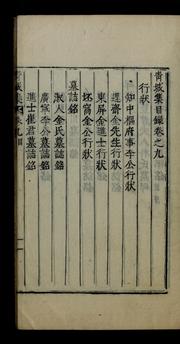 青城集目録卷之九
行狀
知中樞府事李公行狀
遯齋金先生行狀
東屏金進士行狀
坯窩金公行狀
墓誌銘
淑人金氏墓誌銘
廣寧李公墓誌銘
進士崔君墓誌銘
青城集 卷九目